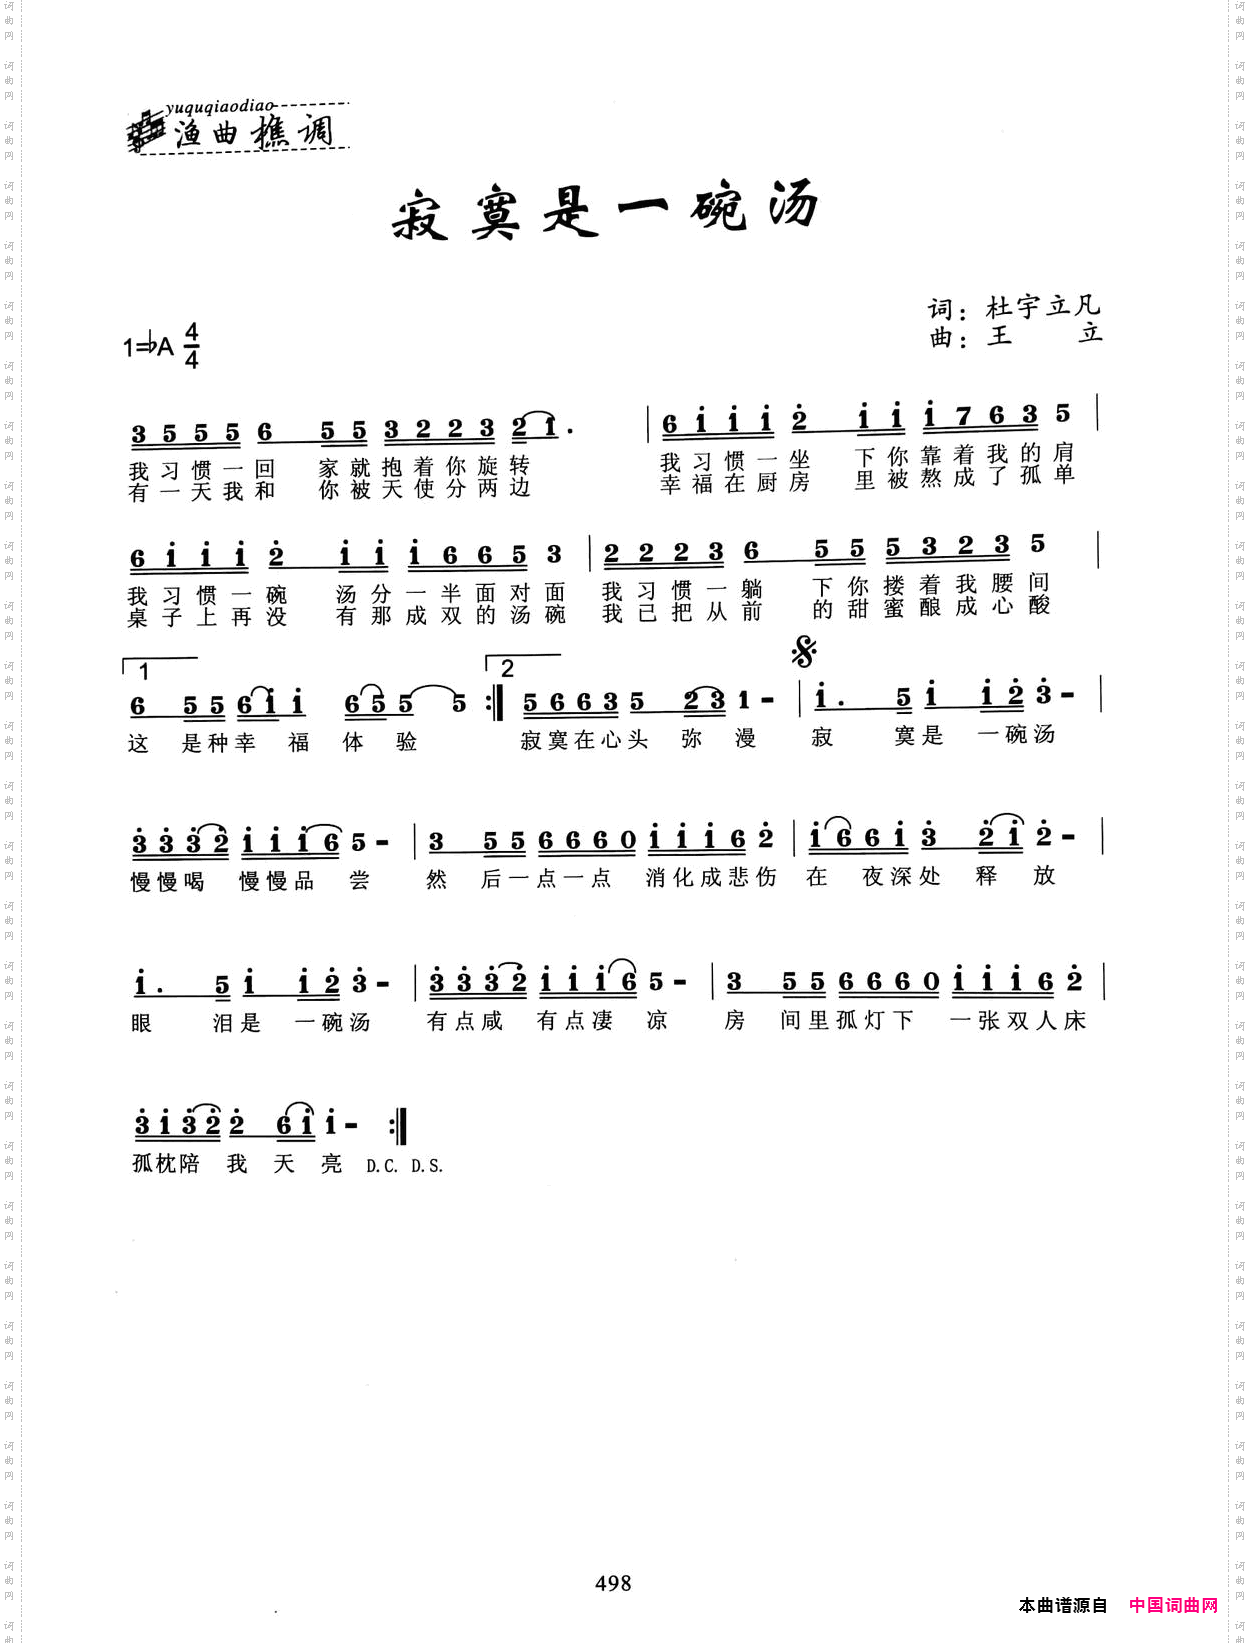 yuquqiaodiao
渔曲樵调
寂寞是一碗汤
词：杜宇立凡
曲：王 立
1=♭A 4/4
3 5 5 5 6 5 5 3 2 2 3 2 1 . | 6 i i i 2 i i i 7 6 3 5 |
我习惯一回 家就抱着你旋转 我习惯一坐 下你靠着我的肩
有一天我和 你被天使分两边 幸福在厨房 里被熬成了孤单
6 i i i 2 i i i 6 6 5 3 | 2 2 2 3 6 5 5 5 3 2 3 5 |
我习惯一碗 汤分一半面对面 我习惯一躺 下你搂着我腰间
桌子上再没 有那成双的汤碗 我己把从前 的甜蜜酿成心酸
1 2
6 5 5 6 i i 6 5 5 5 :‖ 5 6 6 3 5 2 3 1 - | i . 5 i i 2 3 - |
这 是种幸 福 体 验 寂寞在心头 弥 漫 寂 寞是 一碗汤
3 3 3 2 i i i 6 5 - | 3 5 5 6 6 6 0 i i i 6 2 | i 6 6 i 3 2 i 2 - |
慢慢喝 慢慢品 尝 然 后一点一点 消化成悲伤 在 夜深处 释 放
i . 5 i i 2 3 - | 3 3 3 2 i i i 6 5 - | 3 5 5 6 6 6 0 i i i 6 2 |
眼 泪是 一碗汤 有点咸 有点凄 凉 房 间里孤灯下 一张双人床
3 i 3 2 2 6 i i - :‖
孤枕陪 我 天 亮 D.C. D.S.
498
本曲谱源自 中国词曲网